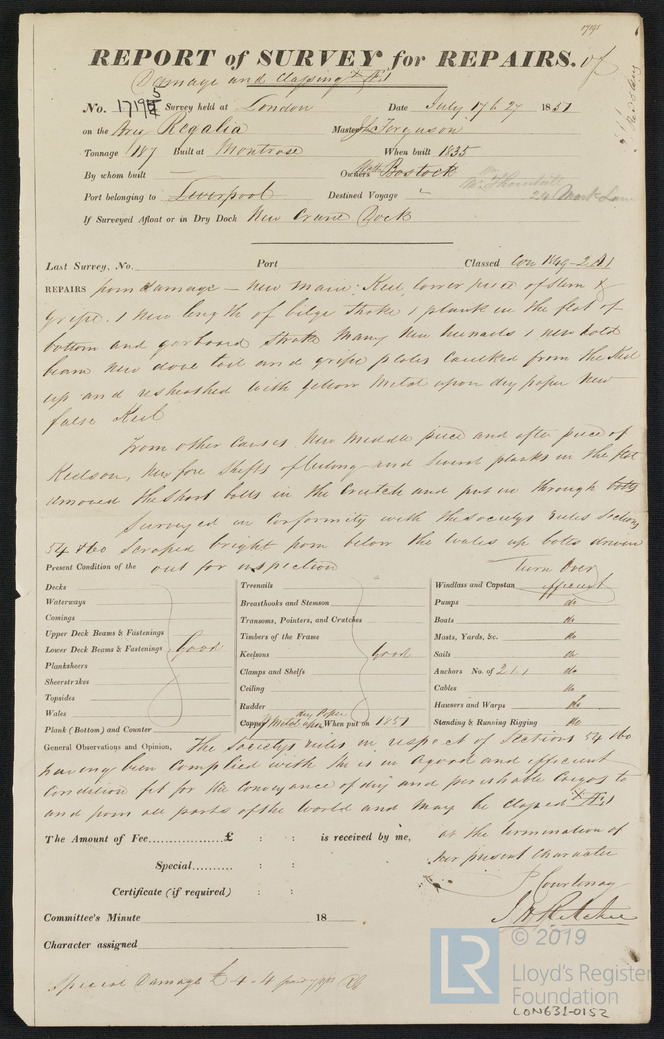 17195
REPORT of SURVEY for REPAIRS. of
Damage and Classing
No. 17195 Survey held at London Date July 17 & 27 1851
on the Brig Regalia Master Jas Ferguson
Tonnage 187 Built at Montrose When built 1835
By whom built — Owners Bostock
Port belonging to Liverpool Destined Voyage -
24 Mark Lane
If Surveyed Afloat or in Dry Dock New Crane Dock
Last Survey, No. Port Classed
REPAIRS from damage - New Main Keel, lower piece of Stem &
gripe. 1 new length of bilge Strake 1 plank in the flat of
bottom and garboard Strake Many New treenails 1 new hold
beam new dove tail and gripe plates Caulked from the Keel
up and resheathed with yellow Metal upon dry paper New
false Keel
From other Causes. New Middle piece and after piece of
Keelson, New fore Shifts of Ceiling and Several planks in the flat
removed the Short bolts in the Crutch and put in through bolts
Surveyed in Conformity with the Societys rules Sections
54 & 60 Scraped bright from below the Wales up bolts driven
Present Condition of the out for inspection Turn Over
Decks
Waterways
Comings
Upper Deck Beams & Fastenings
Lower Deck Beams & Fastenings Good
Planksheers
Sheerstrakes
Topsides
Wales
Plank (Bottom) and Counter
Treenails
Breasthooks and Stemson
Transoms, Pointers, and Crutches
Timbers of the Frame
Keelsons Good
Clamps and Shelfs
Ceiling
Rudder
dry Paper
Copper Y Metal upon When put on 1851
Windlass and Capstan efficient
Pumps do
Boats do
Masts, Yards, &c. do
Sails do
Anchors No. of 2 1 1 do
Cables do
Hawsers and Warps do
Standing & Running Rigging do
General Observations and Opinion, The Societys rules in respect of Sections 54 & 60
having been Complied with She is in a good and efficient
Condition fit for the Conveyance of dry and perishable Cargos to
and from all parts of the World and May be Classed
The Amount of Fee £ : : is received by me, at the termination of
her present Character
Special : :
Certificate (if required) : :
P Courtenay
Committee's Minute 18
J H Ritchie
Character assigned
Special Damage £4-4
LR
© 2019
Lloyd's Register
Foundation
LON631-0152